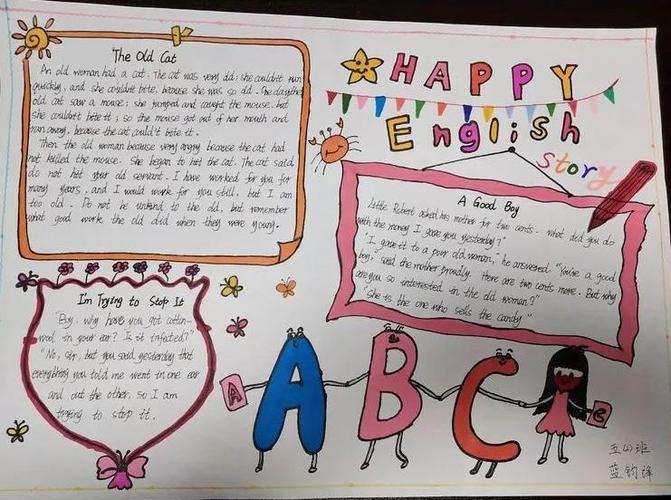 The Old Cat
An old woman had a cat. The cat was very old; she couldn't run
quickly, and she couldn't bite, because she was so old. One day the
old cat saw a mouse; she jumped and caught the mouse. but
she couldn't bite it; so the mouse got out of her mouth and
ran away, because the cat could't bite it.
Then the old woman because very angry because the cat had
not killed the mouse. She began to hit the cat. The cat said,
do not hit your old servant. I have worked for you for
many years, and I would work for you still, but I am
too old. Do not be unkind to the old, but remember
what good work the old did when they were young.
HAPPY
English
story
A Good Boy
Little Robert asked his mother for two cents. What did you do
with the money I gave you yesterday?"
"I gave it to a poor old woman," he answered. "You're a good
boy, said the mother proudly. Here are two cents more. But why
are you so interested in the old woman?"
"She is the one who sells the candy."
Im Trying to Stop It
"Boy. why have you got cotton-
wool in your ear? Is it infected?"
"No, sir, but you said yesterday that
everything you told me went in one ear
and out the other, so I am
trying to stop it.
A
A B C
e
五(2)班
蓝钧译